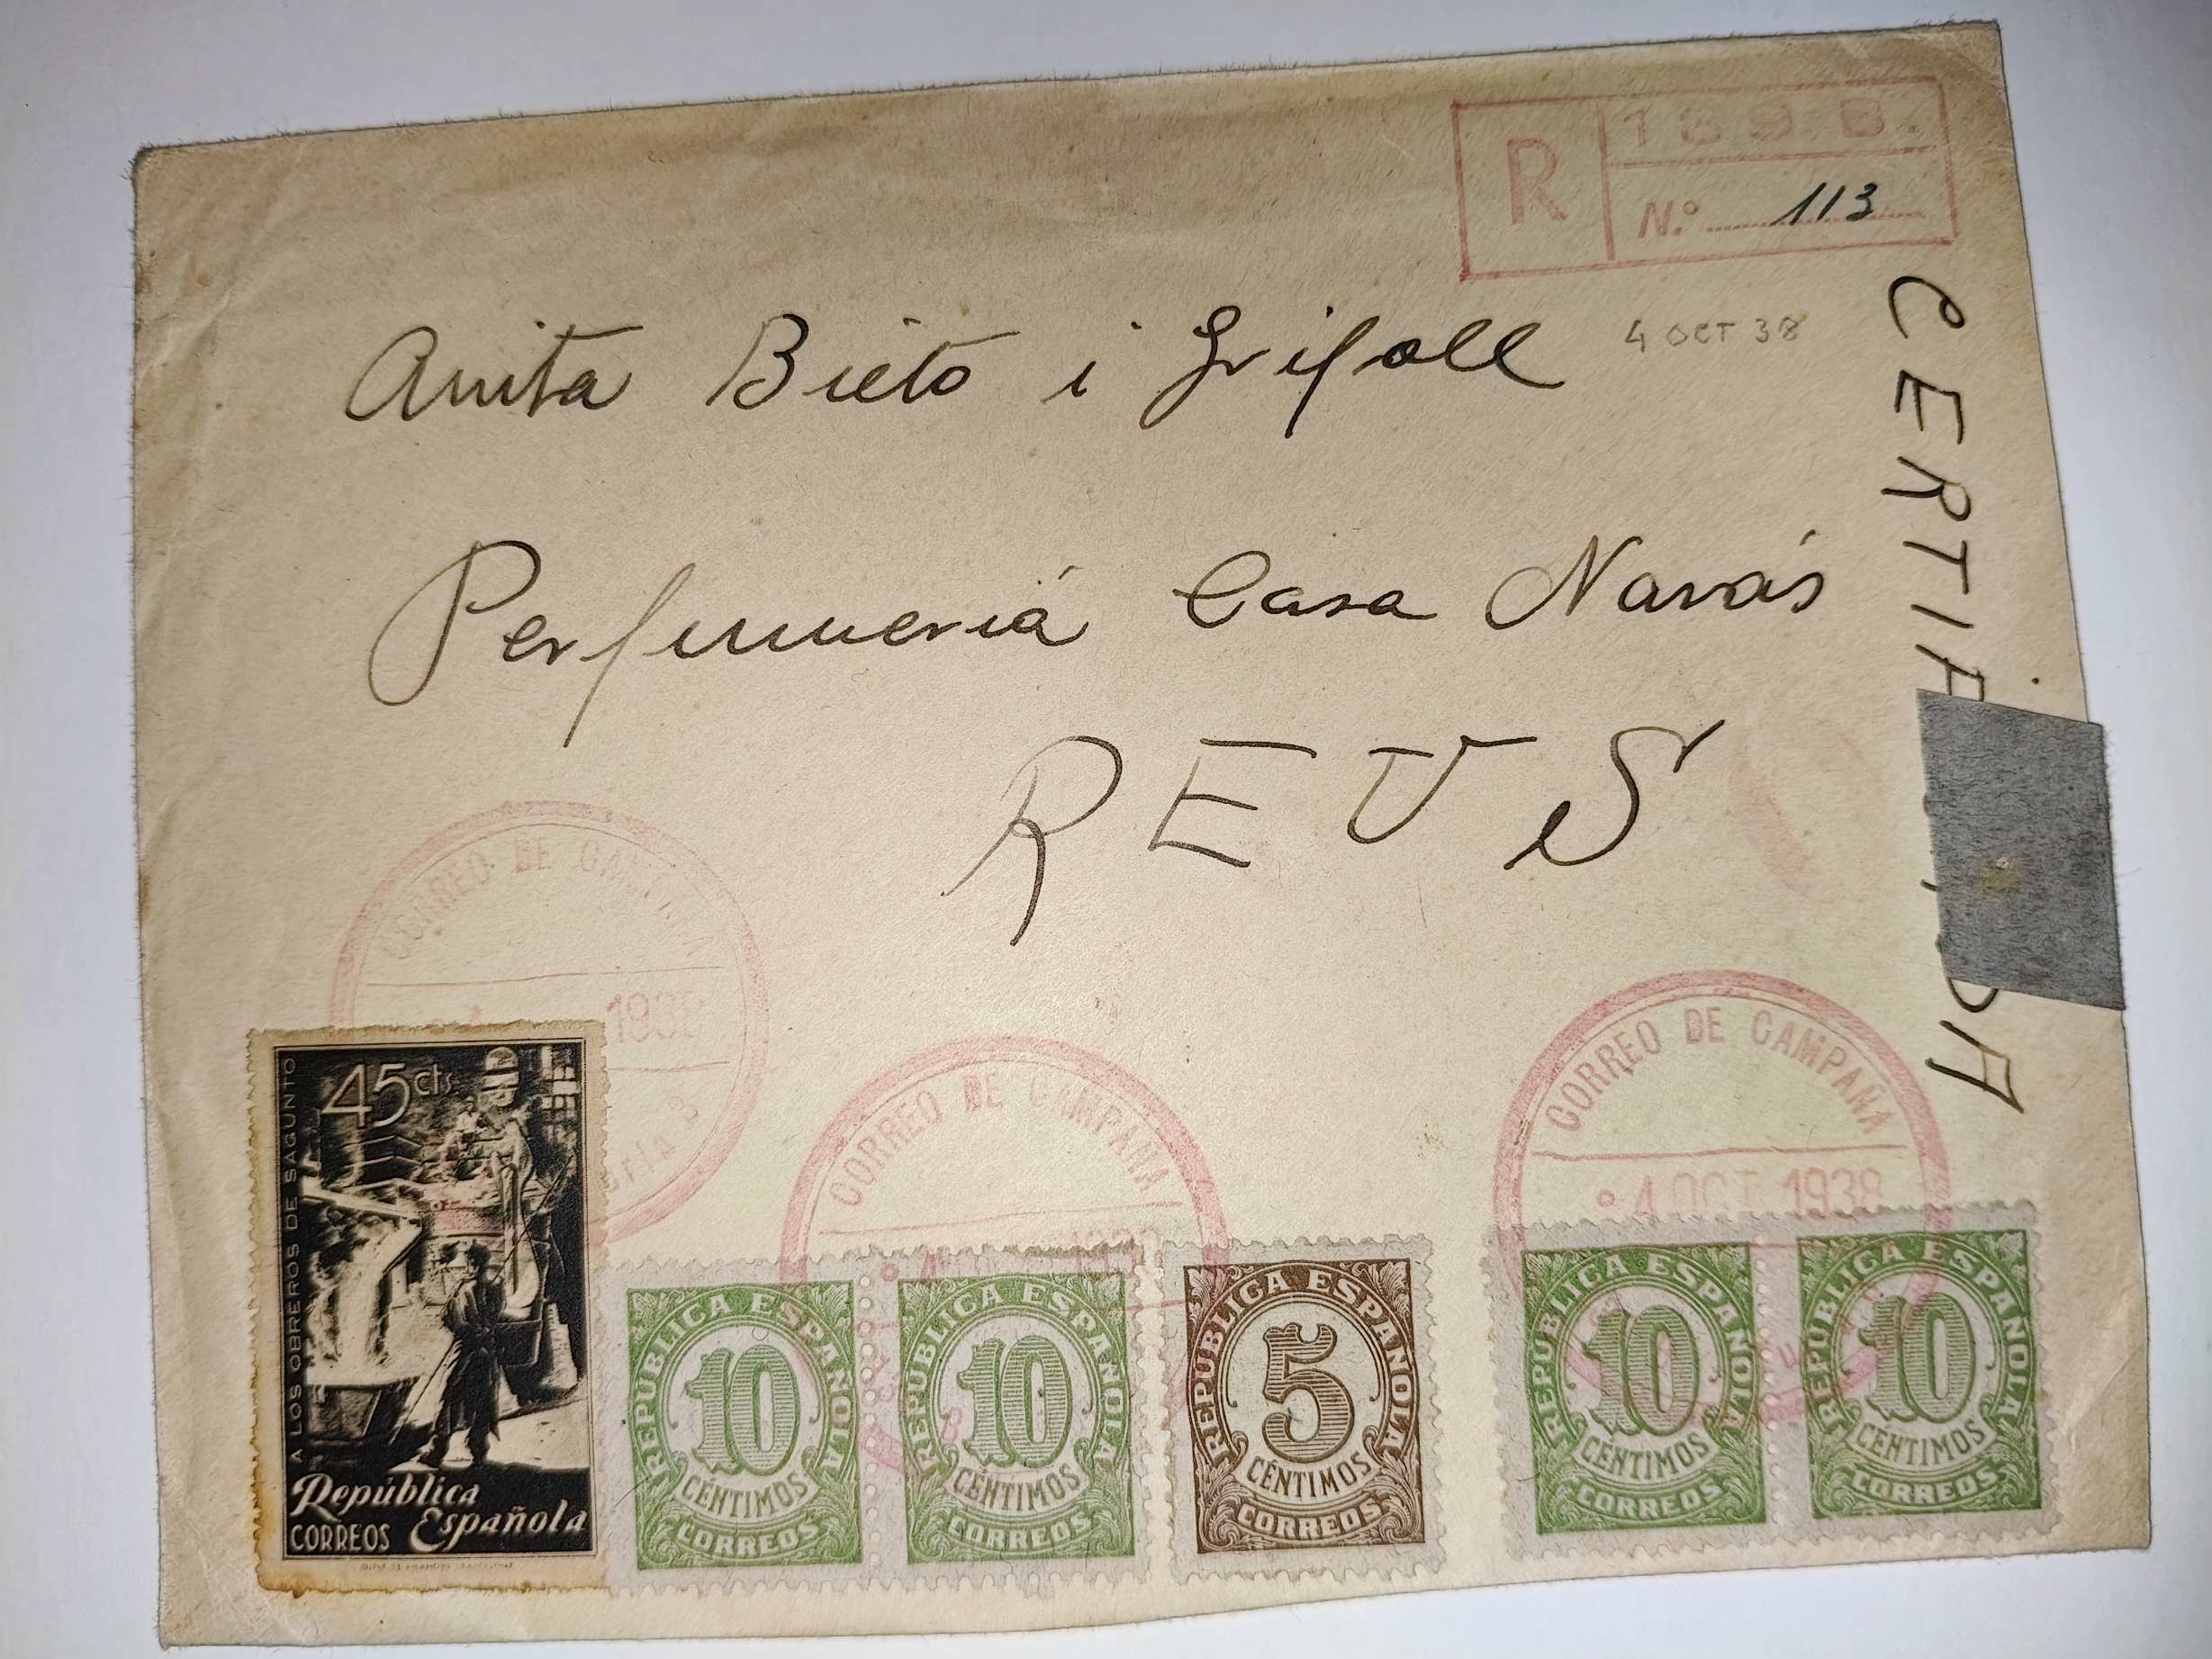 R
139 B.
N.º 113
4 OCT 38
Anita Bieto i Grifoll
CERTIF DA
Perfumeriá Casa Navás
REUS
CORREO DE CAMPAÑA
CORREO DE CAMPAÑA
CORREO DE CAMPAÑA
4 OCT 1938
45 cts
A LOS OBREROS DE SAGUNTO
República
Española
CORREOS
REPUBLICA ESPAÑOLA
10
CÉNTIMOS
CORREOS
REPUBLICA ESPAÑOLA
10
CÉNTIMOS
CORREOS
REPUBLICA ESPAÑOLA
5
CÉNTIMOS
CORREOS
REPUBLICA ESPAÑOLA
10
CÉNTIMOS
CORREOS
REPUBLICA ESPAÑOLA
10
CÉNTIMOS
CORREOS